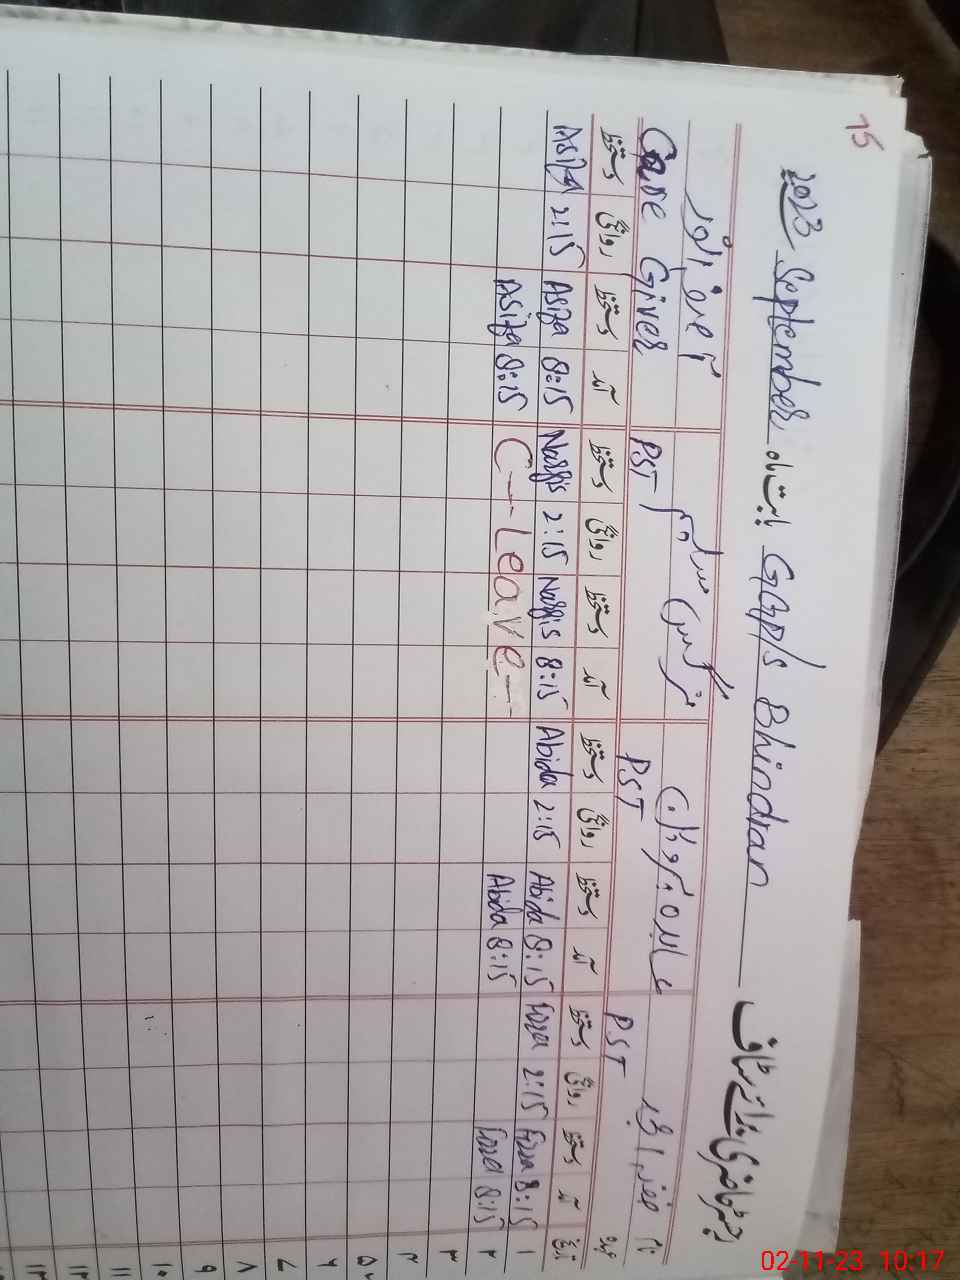 15
رجسٹر حاضری برائے سٹاف GGP/S Bhindran بابت ماہ September 2023
نام
عابدہ پروین
نرگس مریم
عہدہ PST PST PST Care Giver
تاریخ آمد دستخط روانگی دستخط آمد دستخط روانگی دستخط آمد دستخط روانگی دستخط آمد دستخط روانگی دستخط
۱ 8:15 Fizza 2:15 Fizza 8:15 Abida 2:15 Abida 8:15 Nargis 2:15 Nargis 8:15 Asifa 2:15 Asifa
۲ 8:15 Fizza 8:15 Abida C-Leave 8:15 Asifa
۳
۴
۵
۶
۷
۸
۹
۱۰
۱۱
۱۲
۱۳
02-11-23 10:17